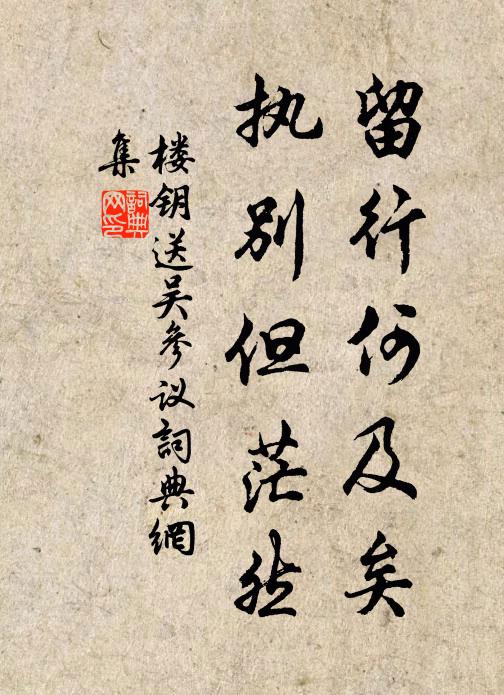 留行何及矣
执别但茫然
楼钥送吴参议詞典網
集
詞典网印